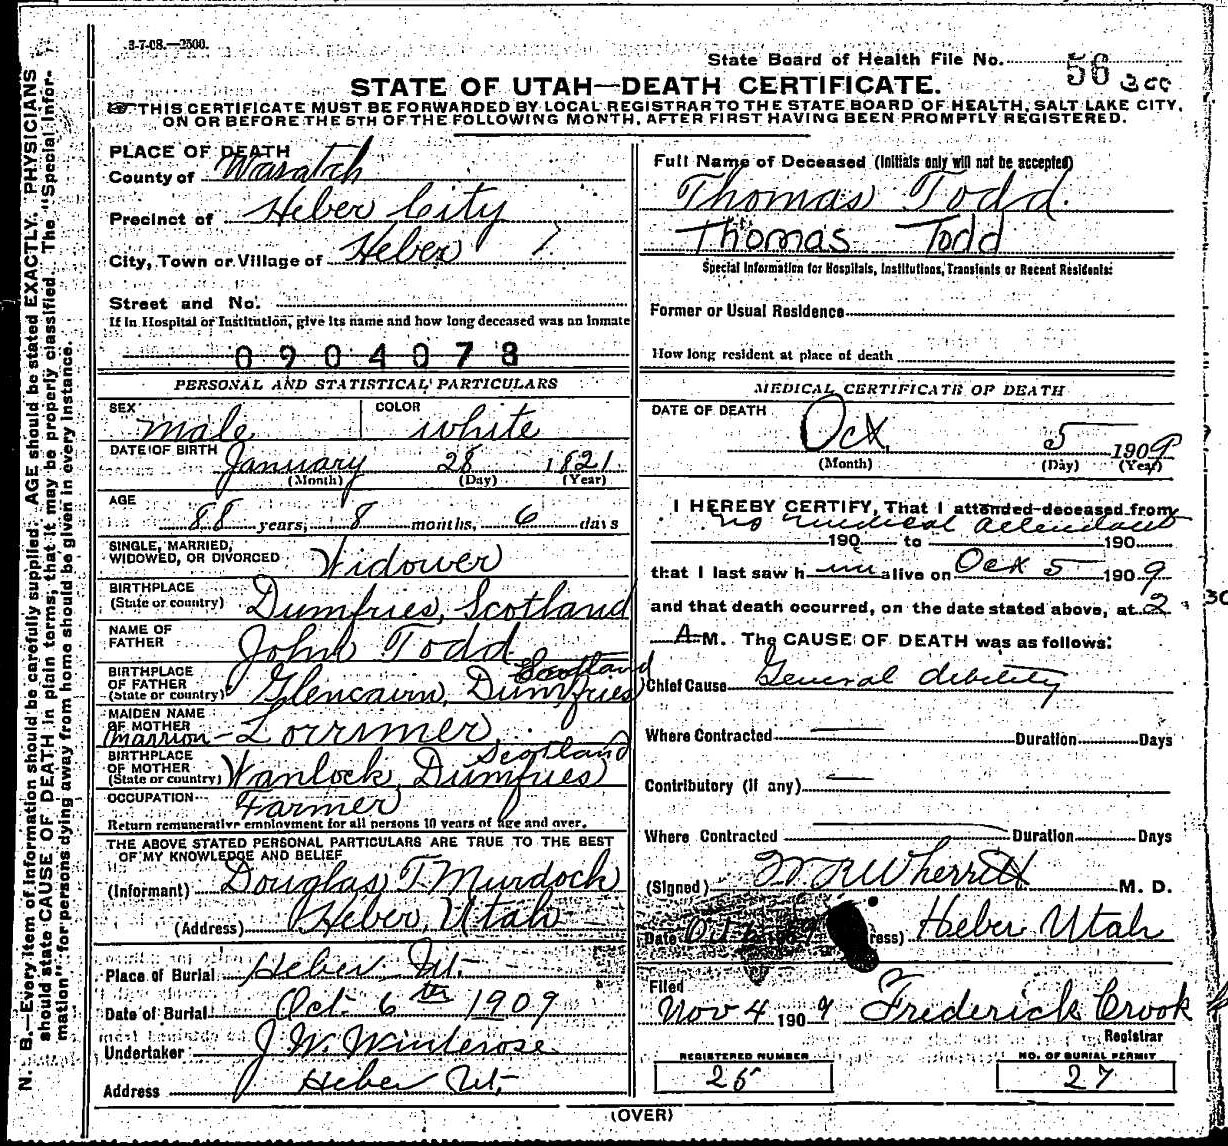 3-7-08.—2500.
State Board of Health File No. 56 300
STATE OF UTAH—DEATH CERTIFICATE.
THIS CERTIFICATE MUST BE FORWARDED BY LOCAL REGISTRAR TO THE STATE BOARD OF HEALTH, SALT LAKE CITY,
ON OR BEFORE THE 5TH OF THE FOLLOWING MONTH, AFTER FIRST HAVING BEEN PROMPTLY REGISTERED.
N. B.—Every item of information should be carefully supplied. AGE should be stated EXACTLY. PHYSICIANS
should state CAUSE OF DEATH in plain terms, that it may be properly classified. The "Special Infor-
mation" for persons dying away from home should be given in every instance.
PLACE OF DEATH
County of Wasatch
Precinct of Heber City
City, Town or Village of Heber
Street and No.
If in Hospital or Institution, give its name and how long deceased was an inmate
0904078
PERSONAL AND STATISTICAL PARTICULARS
SEX male COLOR white
DATE OF BIRTH January 28 1821
(Month) (Day) (Year)
AGE
88 years, 8 months, 6 days
SINGLE, MARRIED,
WIDOWED, OR DIVORCED Widower
BIRTHPLACE
(State or country) Dumfries, Scotland
NAME OF
FATHER John Todd
BIRTHPLACE
OF FATHER Scotland
(State or country) Glencairn, Dumfries
MAIDEN NAME
OF MOTHER
Marrion - Lorrimer
BIRTHPLACE Scotland
OF MOTHER
(State or country) Wanlock, Dumfries
OCCUPATION Farmer
Return remunerative employment for all persons 10 years of age and over.
THE ABOVE STATED PERSONAL PARTICULARS ARE TRUE TO THE BEST
OF MY KNOWLEDGE AND BELIEF
(Informant) Douglas T. Murdock
(Address) Heber, Utah
Place of Burial Heber Ut.
Date of Burial Oct. 6th 1909
Undertaker J W Winterose
Address Heber Ut,
Full Name of Deceased (Initials only will not be accepted)
Thomas Todd.
Thomas Todd
Special Information for Hospitals, Institutions, Transients or Recent Residents:
Former or Usual Residence
How long resident at place of death
MEDICAL CERTIFICATE OF DEATH
DATE OF DEATH Oct, 5 1909
(Month) (Day) (Year)
I HEREBY CERTIFY, That I attended deceased from
no medical attendant
190 to 190
that I last saw him alive on Oct 5 1909
and that death occurred, on the date stated above, at 2 30
A M. The CAUSE OF DEATH was as follows:
Chief Cause General debility
Where Contracted Duration Days
Contributory (if any)
Where Contracted Duration Days
(Signed) W R Wherritt M. D.
Date ress) Heber Utah
Filed
Nov 4 1909 Frederick Crook
Registrar
REGISTERED NUMBER
25
NO. OF BURIAL PERMIT
27
(OVER)